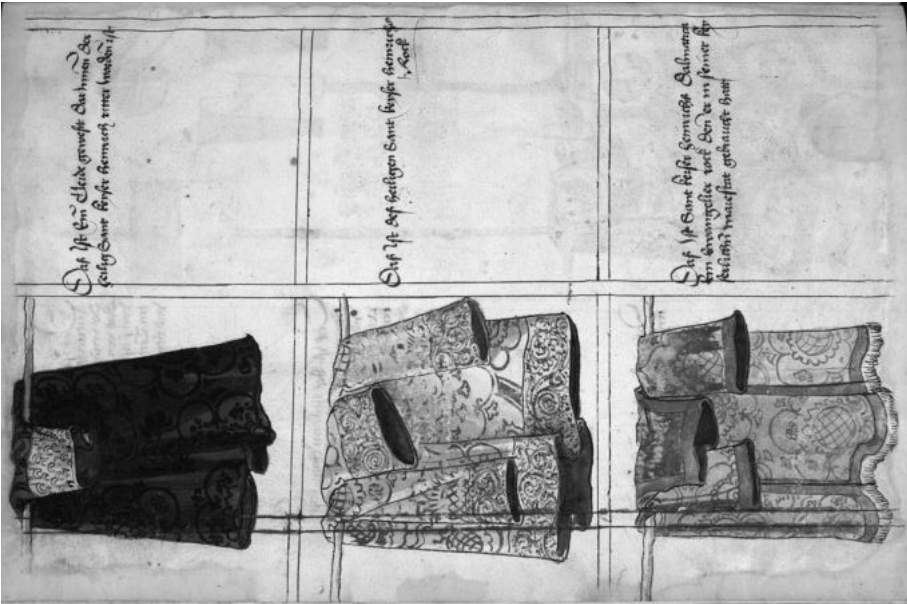 Daß Ist Ein Cleidt gewest Dar Innen der
heilig Sant keyser heinrich ritter worden ist
Daß Ist deß heiligen Sant keyser heinrichs
Rock
Daß Ist Sant keiser heinrichß Dalmatica
ein ewangelier rock den er in seiner key
serlichn maiestat gebraucht hatt